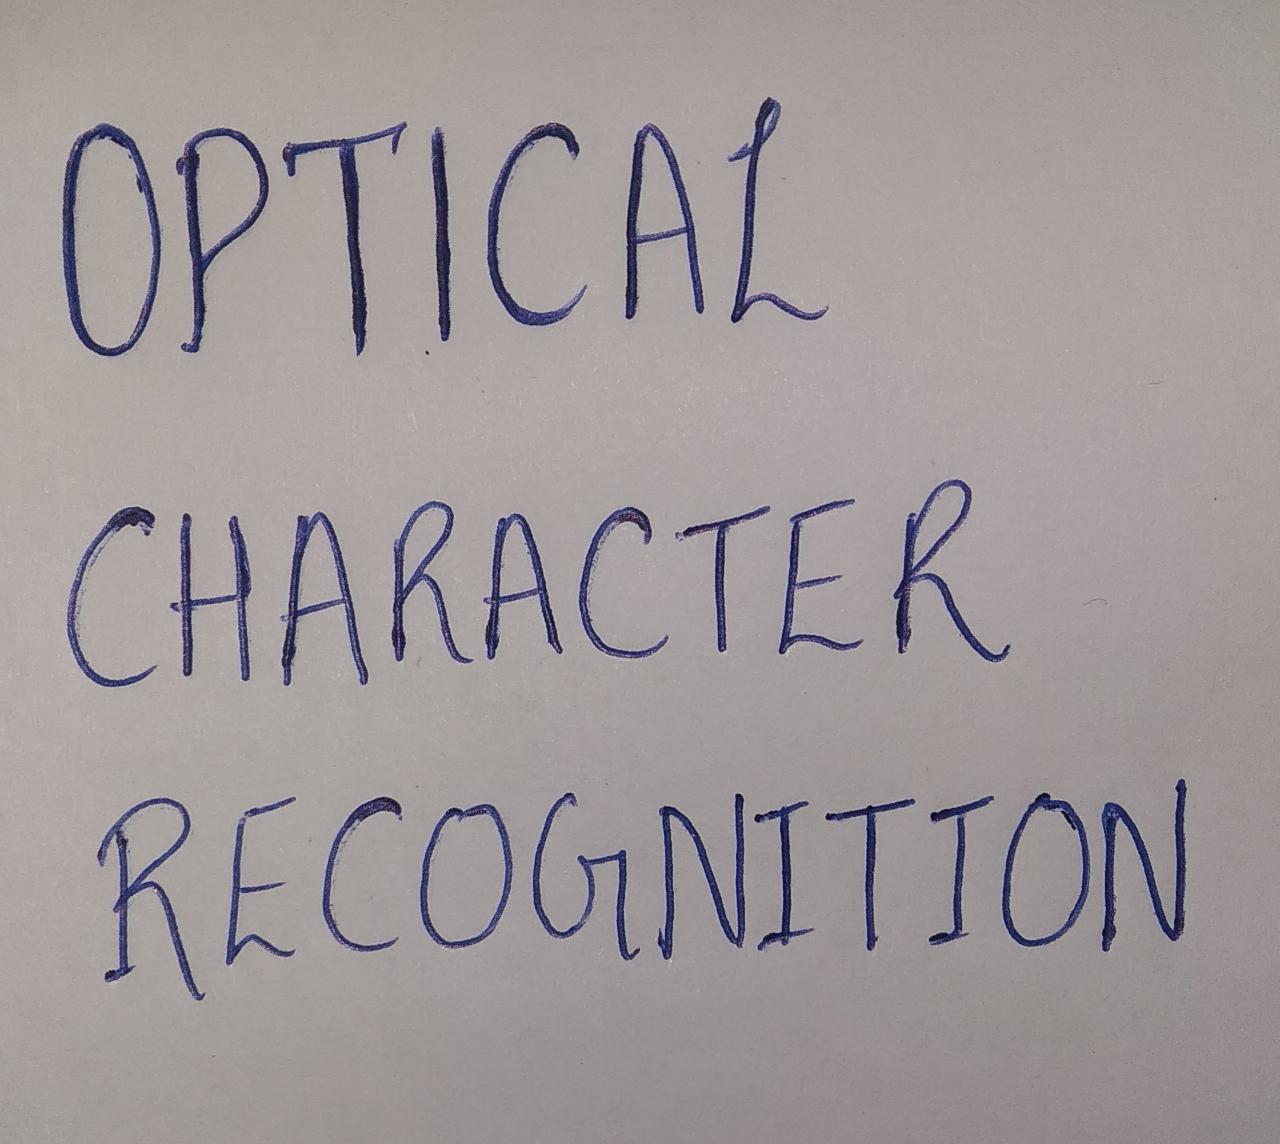 OPTICAL
CHARACTER
RECOGNITION